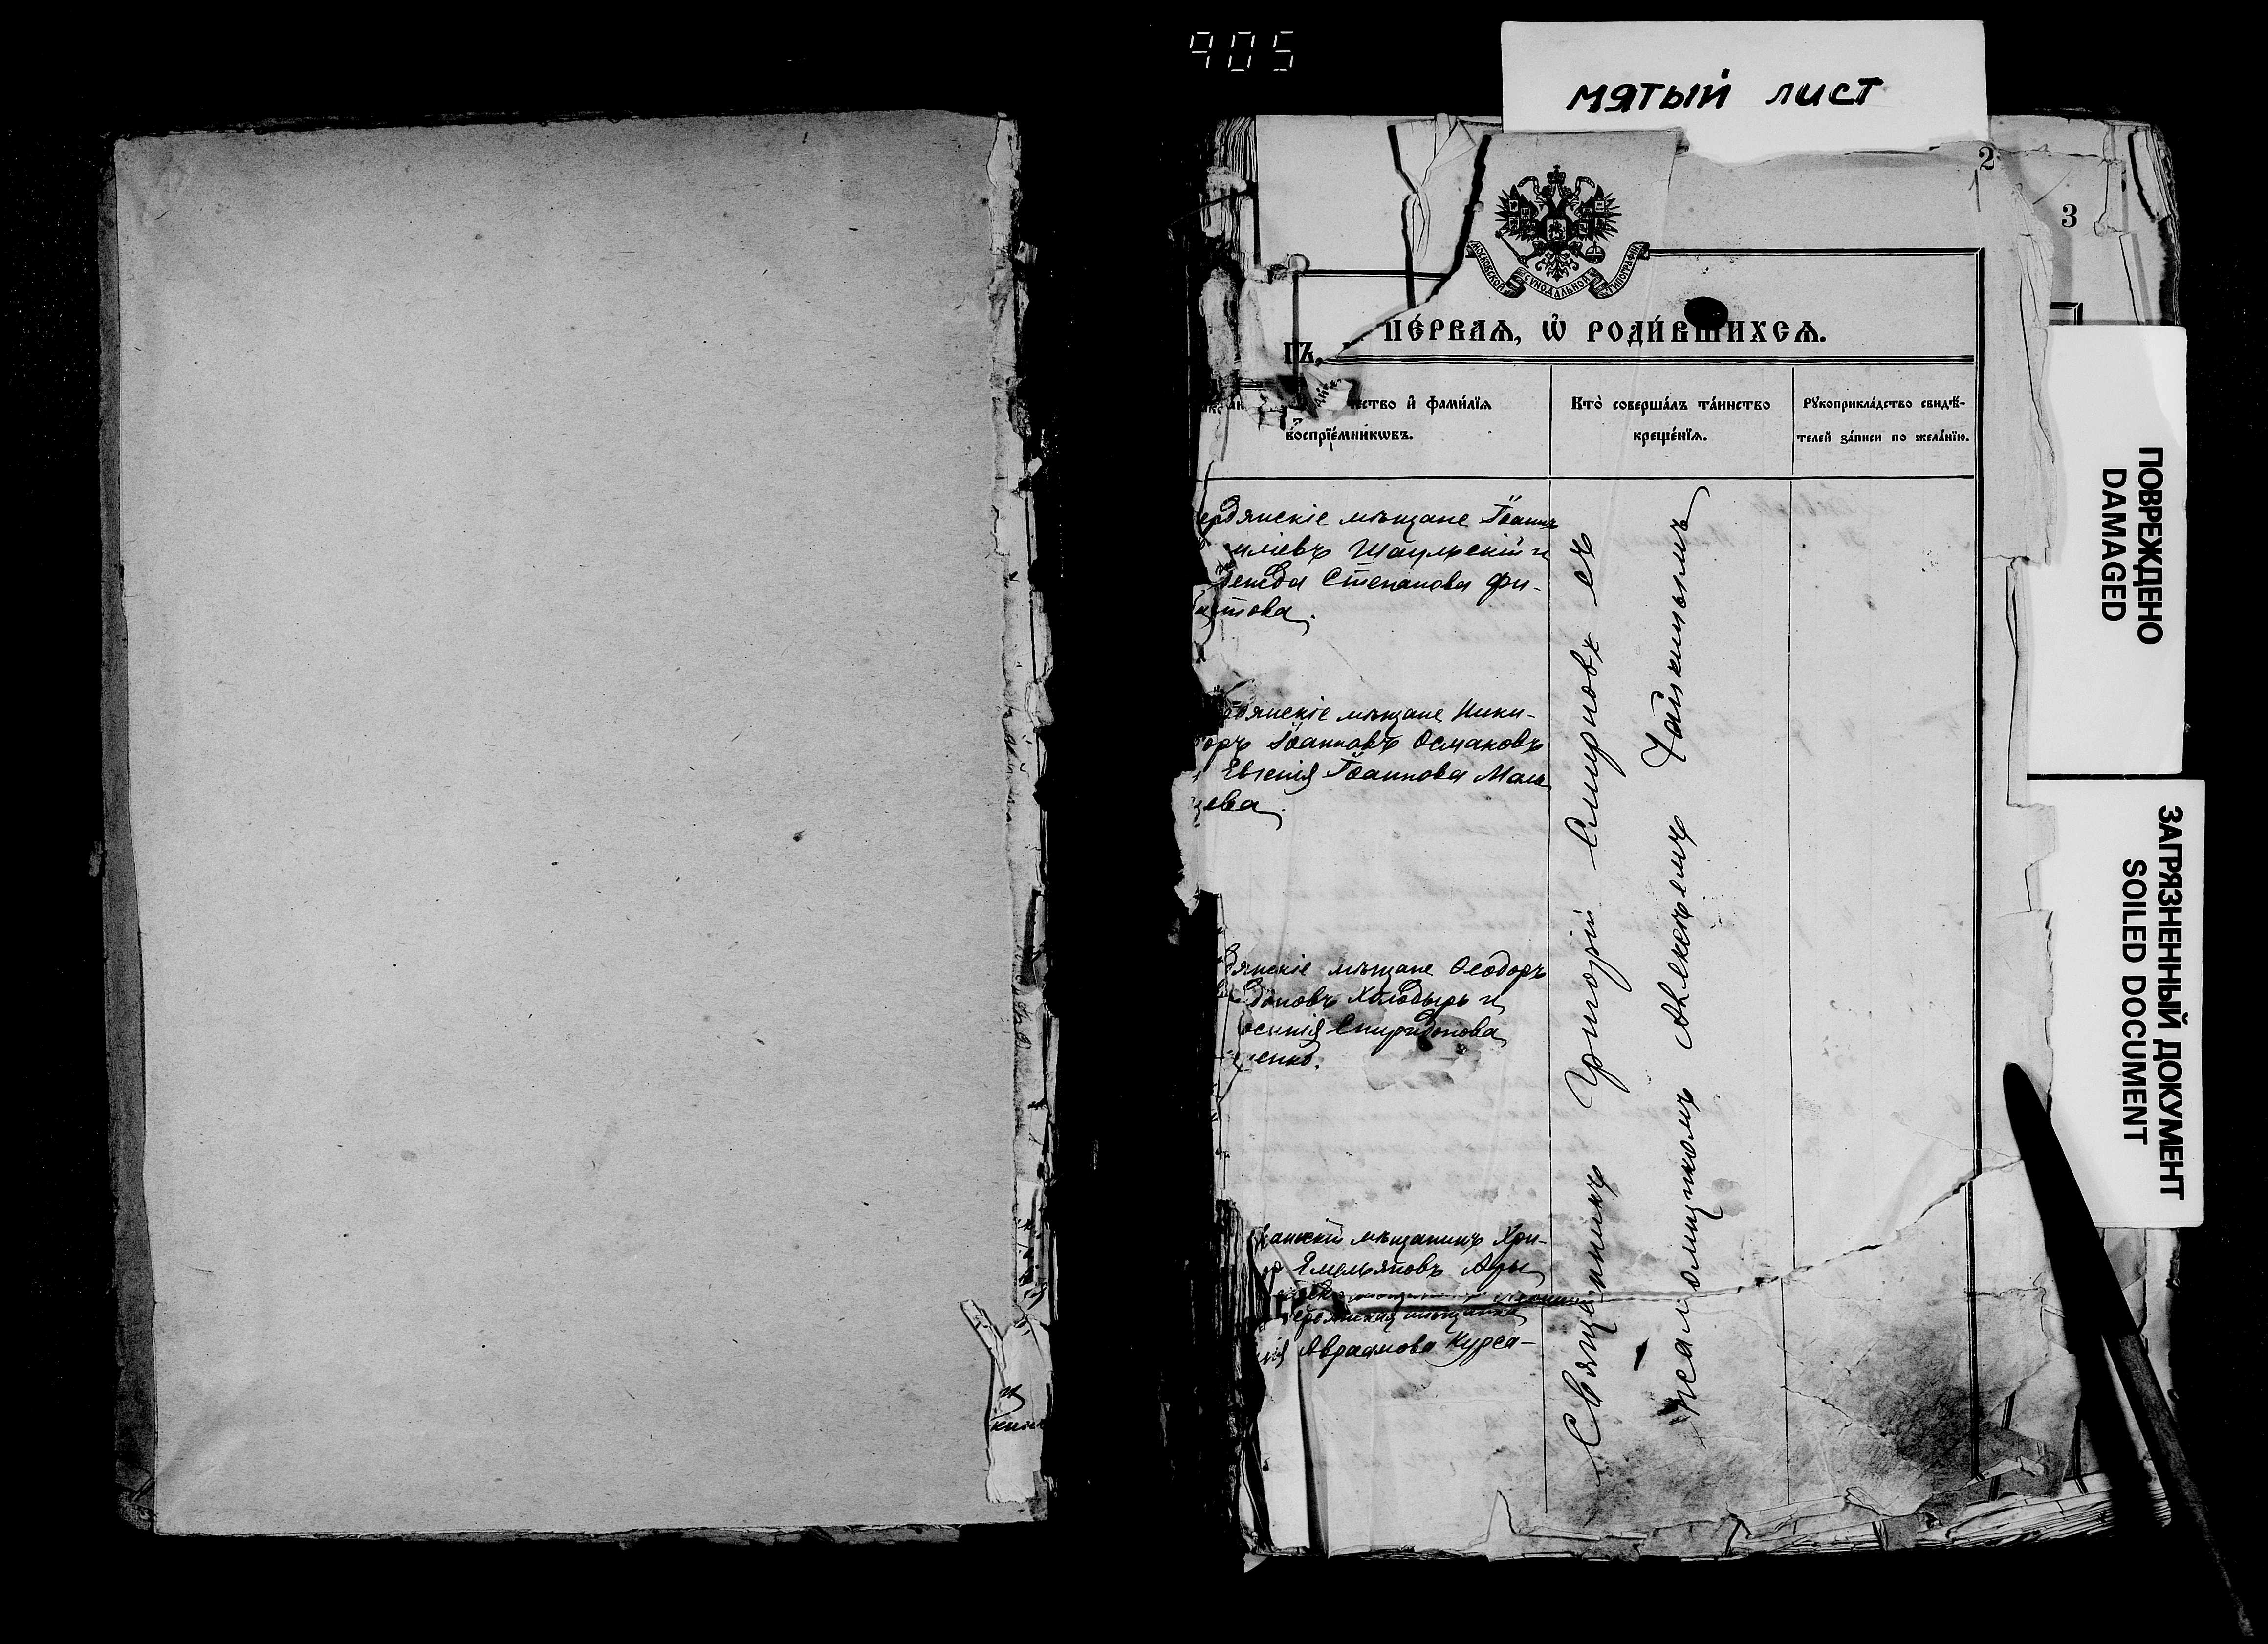 905
мятый лист
2
3
МОСКОВСКОЙ СѴНОДАЛЬНОЙ ТИПОГРАФІИ
ПЕ́РВАѦ, Ѡ҆ РОДИ́ВШИХСѦ.
ГЪ,
ство и҆ фамѝлїѧ
воспрїе́мникѡвъ.
Кто̀ соверша́лъ та́инство
креще́нїѧ.
Рꙋкоприкла́дство свидѣ́-
телей за́писи по жела́нїю.
ердянскіе мѣщане Іоаннъ
иліевъ Шаульскій и
дежда Степанова Фи-
атова.
рдянскіе мѣщане Ники-
оръ Іоанновъ Османовъ
Евгенія Іоаннова Маль
цева.
дянскіе мѣщане Ѳеодоръ
доновъ Холодырь и
осинія Спиридонова
енко.
янскій мѣщанинъ Хри-
ор Емельяновъ
ердянская мѣщанка
ія Авраамова Курса-
Священникъ Григорій Смирновъ съ
псаломщикомъ Алексѣемъ Чайкинымъ
ПОВРЕЖДЕНО
DAMAGED
ЗАГРЯЗНЕННЫЙ ДОКУМЕНТ
SOILED DOCUMENT